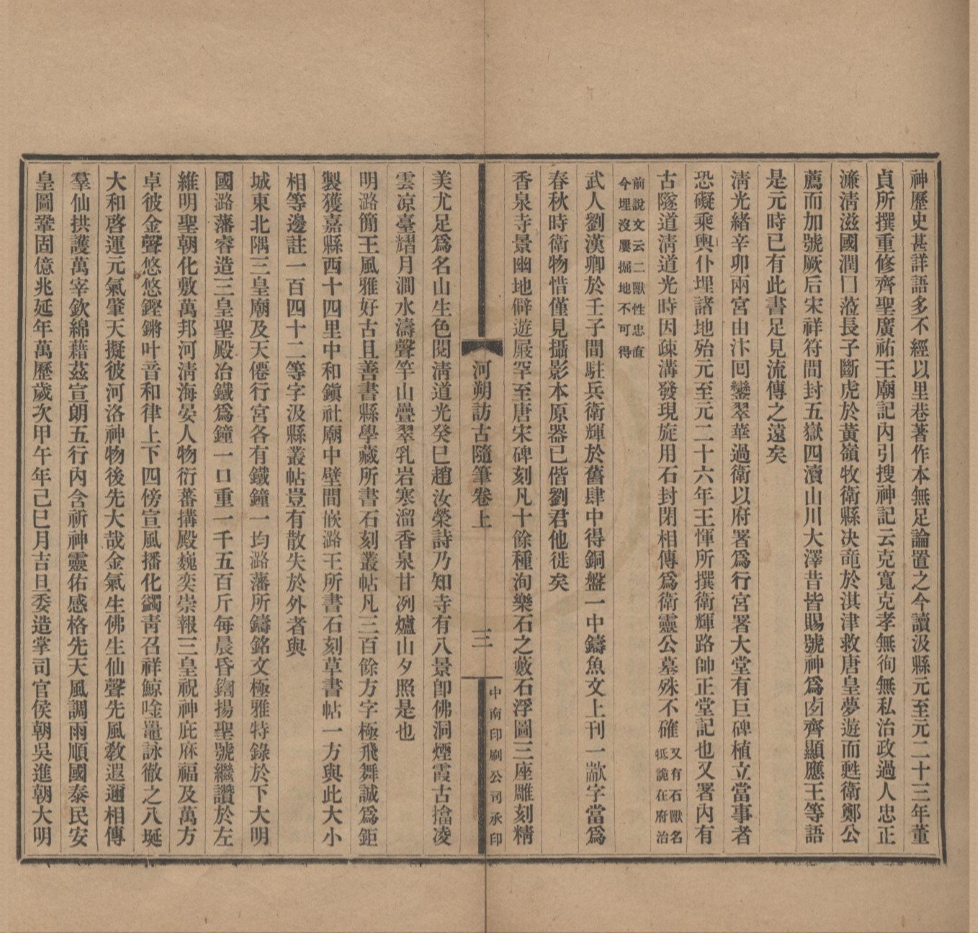 神歷史甚詳語多不經以里巷著作本無足論置之今讀汲縣元至元二十三年董
貞所撰重修齊聖廣祐王廟記內引搜神記云克寬克孝無徇無私治政過人忠正
濂淸滋國潤口蒞長子斷虎於黃嶺牧衛縣决竜於淇津救唐皇夢遊而甦衛鄭公
薦而加號厥后宋祥符間封五嶽四瀆山川大澤昔皆賜號神爲卤齊顯應王等語
是元時已有此書足見流傳之遠矣
淸光緖辛卯兩宮由汴囘鑾翠華過衛以府署爲行宮署大堂有巨碑植立當事者
恐礙乘輿仆埋諸地殆元至元二十六年王惲所撰衛輝路帥正堂記也又署內有
古隧道淸道光時因疎溝發現旋用石封閉相傳爲衛靈公墓殊不確又有石獸名
牴詭在府治
前說文云二獸性忠直
今埋沒屢掘地不可得
武人劉漢卿於壬子間駐兵衛輝於舊肆中得銅盤一中鑄魚文上刊一歊字當爲
春秋時衛物惜僅見攝影本原器已偕劉君他徙矣
香泉寺景幽地僻遊屐罕至唐宋碑刻凡十餘種洵樂石之藪石浮圖三座雕刻精
河朔訪古隨筆卷上
三
中南印刷公司承印
美尤足爲名山生色閱淸道光癸巳趙汝榮詩乃知寺有八景卽佛洞煙霞古擋凌
雲凉臺耀月澗水濤聲竿山疊翠乳岩寒溜香泉甘冽爐山夕照是也
明潞簡王風雅好古且善書縣學藏所書石刻叢帖凡三百餘方字極飛舞誠爲鉅
製獲嘉縣西十四里中和鎭社廟中壁間嵌潞王所書石刻草書帖一方與此大小
相等邊註一百四十二等字汲縣叢帖豈有散失於外者與
城東北隅三皇廟及天僊行宮各有鐵鐘一均潞藩所鑄銘文極雅特錄於下大明
國潞藩睿造三皇聖殿冶鐵爲鐘一口重一千五百斤每晨昏鏑揚聖號繼讚於左
維明聖朝化敷萬邦河淸海晏人物衍蕃搆殿巍奕崇報三皇祝神庇庥福及萬方
卓彼金聲悠悠鏗鏘叶音和律上下四傍宣風播化蠲靑召祥鯨唫鼉詠徹之八埏
大和啓運元氣肇天擬彼河洛神物後先大哉金氣生佛生仙聲先風敎遐邇相傳
羣仙拱護萬宰欽綿藉茲宣朗五行內含祈神靈佑感格先天風調雨順國泰民安
皇圖鞏固億兆延年萬歷歲次甲午年己巳月吉旦委造掌司官侯朝吳進朝大明